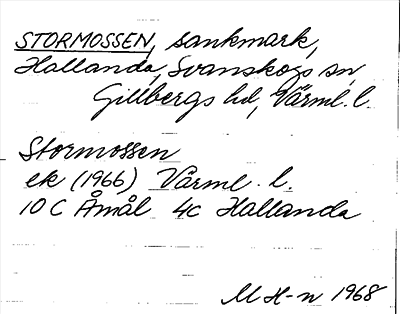 STORMOSSEN, sankmark,
Hallanda, Svanskogs sn,
Gillbergs hd, Värml. l.
Stormossen
ek (1966) Värml. l.
10 C Åmål 4c Hallanda
M H-n 1968